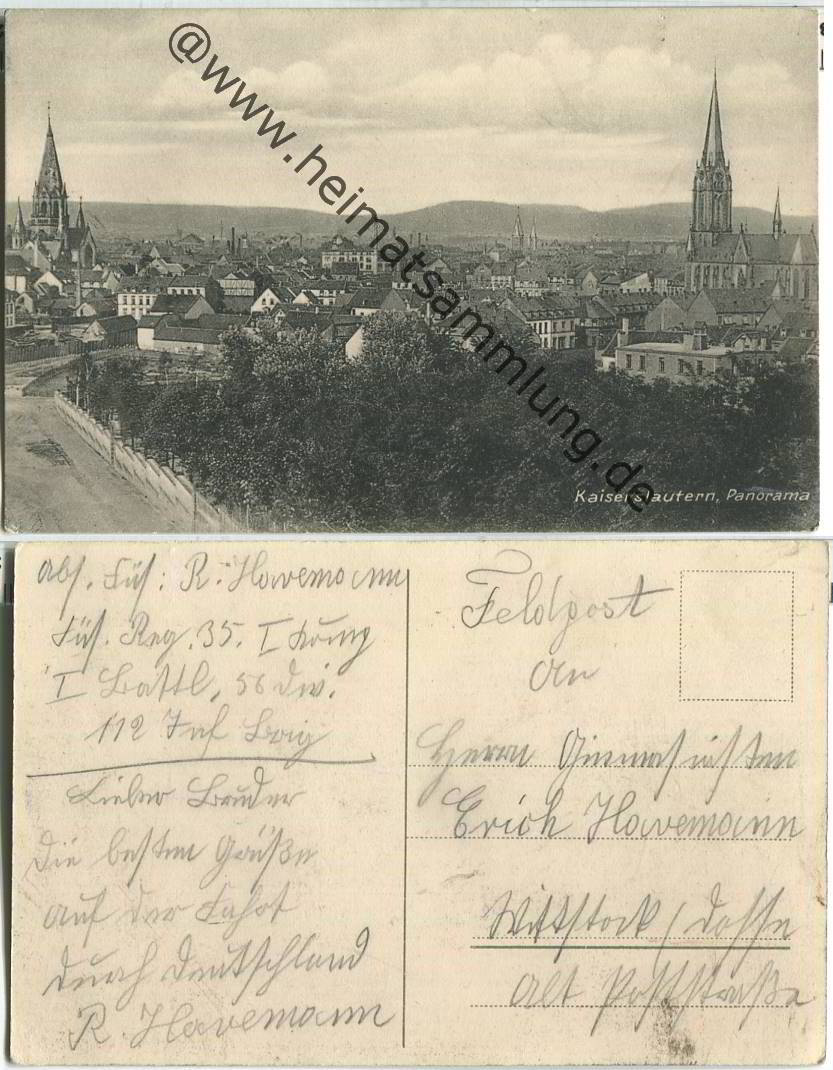 @www.heimatsammlung.de
Kaiserslautern, Panorama
Abs. Füs: R. Havemann
Füs. Reg. 35. I Komp
I Battl, 56 Div.
112 Inf Brig
Lieber Bruder
Die besten Grüße
auf der Fahrt
durch Deutschland
R. Havemann
Feldpost
An
Herrn Gimnasisten
Erich Havemann
Wittstock / Dosse
Alt Poststraße